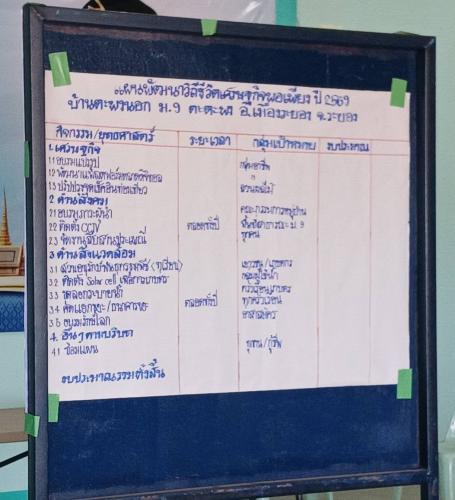 แผนพัฒนาวิถีชีวิตเศรษฐกิจพอเพียง ปี 2569
บ้านตะพงนอก ม.9 ต.ตะพง อ.เมืองระยอง จ.ระยอง
กิจกรรม/ยุทธศาสตร์ ระยะเวลา กลุ่มเป้าหมาย งบประมาณ
1.เศรษฐกิจ
1.1 อบรมแปรรูป กลุ่มอาชีพ
1.2 พัฒนาแพลตฟอร์มตลาดดิจิตอล "
1.3 ปรับปรุงจุดเช็คอินท่องเที่ยว สวนผลไม้
2 ด้านสังคม
2.1 อบรมภาวะผู้นำ คณะกรรมการหมู่บ้าน
2.2 ติดตั้ง CCTV ตลอดทั้งปี ม.9
2.3 จัดงานสืบสานประเพณี ทุกคน
3 ด้านสิ่งแวดล้อม
3.1 (ทุเรียน) เยาวชน/เกษตรกร
3.2 ติดตั้ง Solar cell เพื่อการเกษตร กลุ่มผู้ใช้น้ำ
3.3 ขุดลอก
3.4 คัดแยกขยะ/ธนาคารขยะ ตลอดทั้งปี ทุกครัวเรือน
3.5 อบรม
4. อื่นๆ
4.1 ซ้อมแผน
งบประมาณรวมทั้งสิ้น